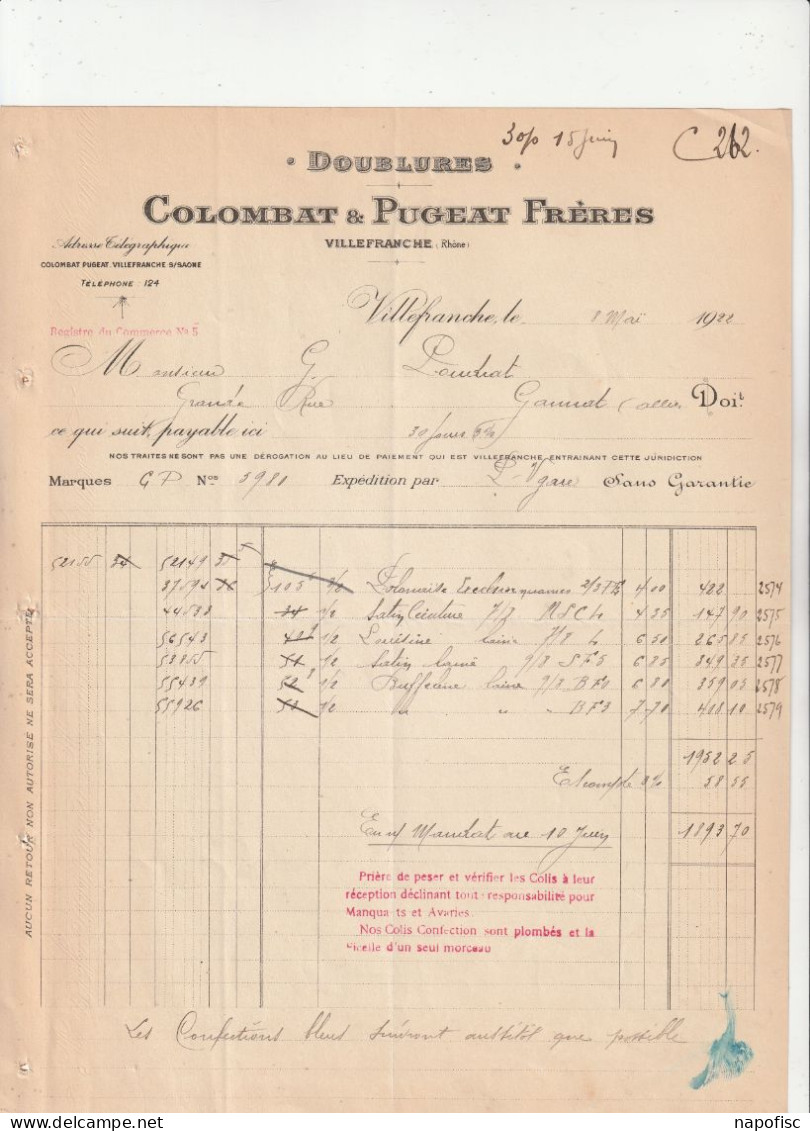 30% 15 Juin
C 262.
• DOUBLURES •
COLOMBAT & PUGEAT FRÈRES
VILLEFRANCHE (Rhône)
Adresse Télégraphique
COLOMBAT PUGEAT. VILLEFRANCHE S/SAONE
TÉLÉPHONE : 124
Villefranche, le 8 Mai 1922
Registre du Commerce No 5
Monsieur G.
Grande Rue Gannat (Allier) Doit
ce qui suit, payable ici 30 jours 3%
NOS TRAITES NE SONT PAS UNE DÉROGATION AU LIEU DE PAIEMENT QUI EST VILLEFRANCHE ENTRAINANT CETTE JURIDICTION
Marques G P Nos 5981 Expédition par gare Sans Garantie
52155 34 52149 35
37594 105 1/2 Polonaise 2/3 4,00 422 2574
44538 34 1/2 Satin Ceinture 7/8 4 35 147 90 2575
56543 1/2 laine 7/8 6 50 265 85 2576
53855 51 1/2 Satin 9/8 SF5 6 85 349 35 2577
55439 52 1/2 laine 9/8 6 80 359 05 2578
55926 53 1/2 " " " BF3 7 70 408 10 2579
1952 25
Escompte 3% 58 55
Mandat au 10 Juin 1893 70
Prière de peser et vérifier les Colis à leur
réception déclinant tout responsabilité pour
Manqua ts et Avaries.
Nos Colis Confection sont plombés et la
ficelle d'un seul morceau
AUCUN RETOUR NON AUTORISE NE SERA ACCEPTÉ
Les Confections bleus suivront aussitôt que possible
napofisc